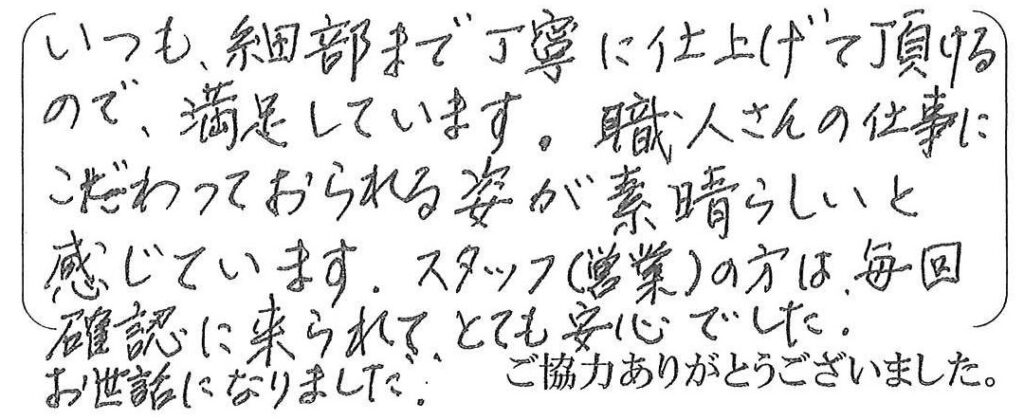 いつも、細部まで丁寧に仕上げて頂ける
ので、満足しています。職人さんの仕事に
こだわっておられる姿が素晴らしいと
感じています。スタッフ(営業)の方は、毎回
確認に来られて、とても安心でした。
お世話になりました。
ご協力ありがとうございました。